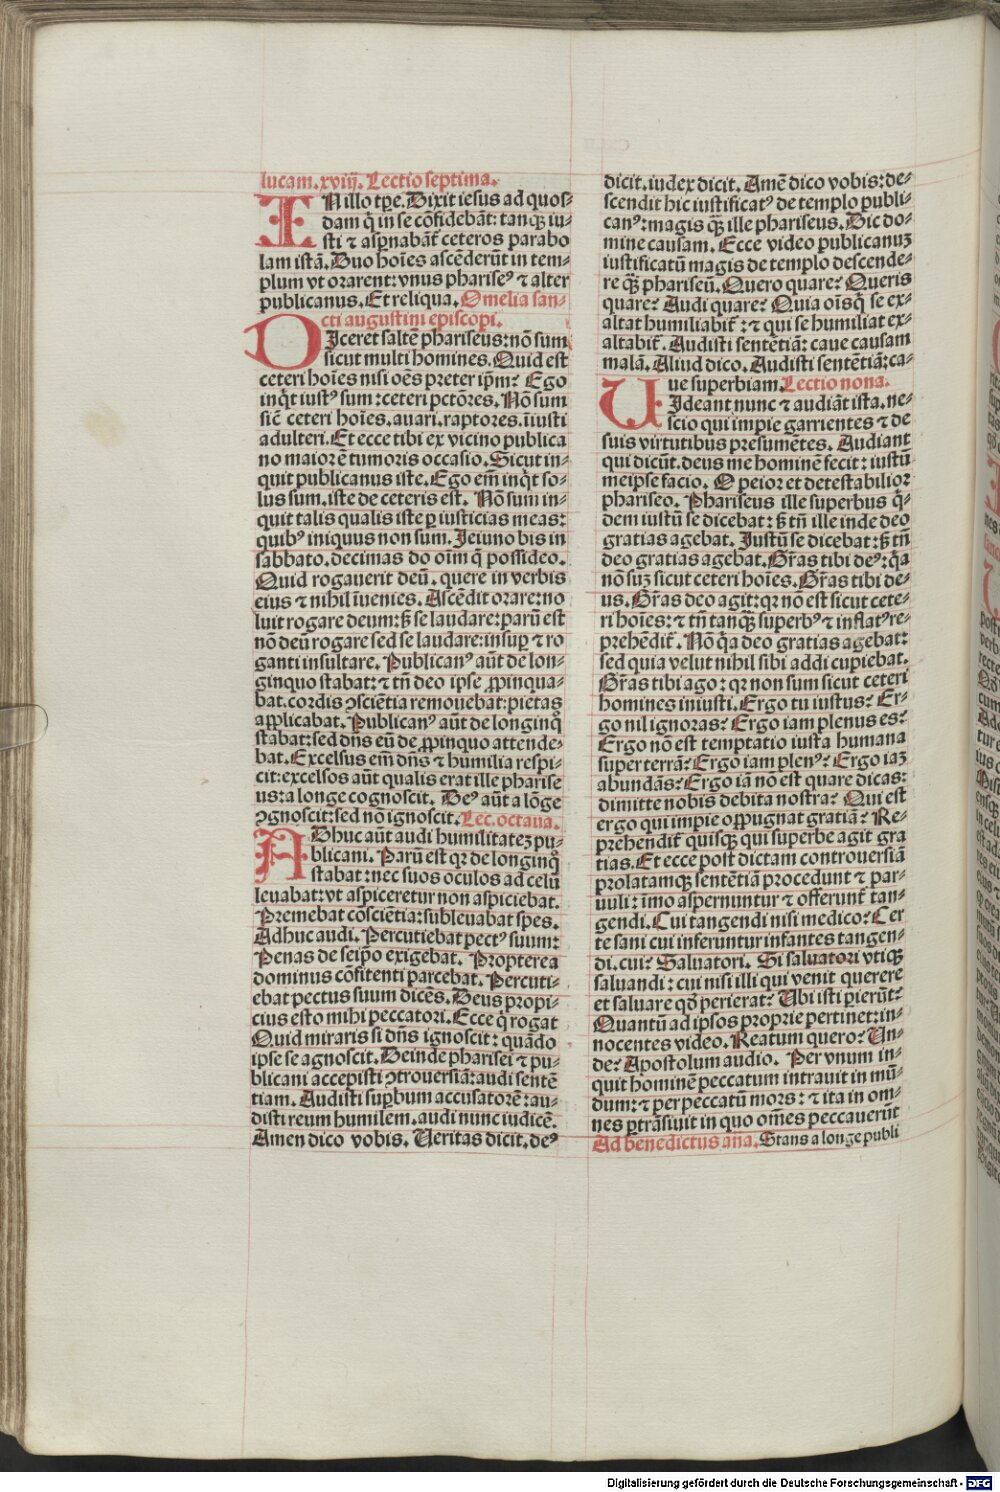 lucam.xviij. Lectio septima.
IN illo tꝑe. Dixit iesus ad quos-
dam q̇ in se cōfidebāt: tanqꝫ iu-
sti ⁊ aspnabāt̄ ceteros parabo
lam istā. Duo hoīes ascēderūt in tem-
plum vt orarent: vnus phariseꝰ ⁊ alter
publicanus. Et reliqua. Omelia san-
cti augustini episcopi.
DIceret saltē phariseus: nō sum
sicut multi homines. Quid est
ceteri hoīes nisi oēs preter ip̄m? Ego
inq̇t iustꝰ sum: ceteri pctōres. Nō sum
sic̄ ceteri hoīes. auari. raptores. īiusti
adulteri. Et ecce tibi ex vicino publica
no maior ē tumoris occasio. Sicut in-
quit publicanus iste. Ego em̄ inq̇t so-
lus sum. iste de ceteris est. Nō sum in-
quit talis qualis iste ꝑ iusticias meas:
quibꝰ iniquus non sum. Jeiuno bis in
sabbato. decimas do oīm q̄ possideo.
Quid rogauerit deū. quere in verbis
eius ⁊ nihil īuenies. Ascēdit orare: no
luit rogare deum: sꝫ se laudare: parū est
nō deū rogare sed se laudare: insuꝑ ⁊ ro
ganti insultare. Publicanꝰ aūt de lon-
ginquo stabat: ⁊ tn̄ deo ipse ꝓpinqua-
bat. cordis ꝯsciētia remouebat: pietas
applicabat. Publicanꝰ aūt de longinq̊
stabat: sed dn̄s eū de ꝓpinquo attende-
bat. Excelsus em̄ dn̄s ⁊ humilia respi-
cit: excelsos aūt qualis erat ille pharise
us: a longe cognoscit. Deꝰ aūt a lōge
ꝯgnoscit: sed nō ignoscit. Lec. octaua.
ADhuc aūt audi humilitateꝫ pu-
blicani. Parū est qꝛ de longinq̊
stabat: nec suos oculos ad celū
leuabat: vt aspiceretur non aspiciebat.
Premebat cōsciētia: subleuabat spes.
Adhuc audi. Percutiebat pectꝰ suum:
Penas de seip̄o exigebat. Propterea
dominus cōfitenti parcebat. Percuti-
ebat pectus suum dicēs. Deus propi-
cius esto mihi peccatori. Ecce q̇ rogat
Quid miraris si dn̄s ignoscit: quādo
ipse se agnoscit. Deinde pharisei ⁊ pu-
blicani accepisti ꝯtrouersiā: audi sentē
tiam. Audisti suꝑbum accusatorē: au-
disti reum humilem. audi nunc iudicē.
Amen dico vobis. Ueritas dicit. deꝰ
dicit. iudex dicit. Amē dico vobis: de-
scendit hic iustificatꝰ de templo publi-
canꝰ: magis qꝫ ille phariseus. Dic do-
mine causam. Ecce video publicanuꝫ
iustificatū magis de templo descende-
re qꝫ phariseū. Quero quare? Queris
quare? Audi quare? Quia oīsq̇ se ex-
altat humiliabit̄: ⁊ qui se humiliat ex-
altabit̄. Audisti sentētiā: caue causam
malā. Aliud dico. Audisti sentētiā: ca-
ue superbiam. Lectio nona.
UIdeant nunc ⁊ audiāt ista. ne-
scio qui impie garrientes ⁊ de
suis virtutibus presumētes. Audiant
qui dicūt. deus me hominē fecit: iustū
meipse facio. O peior et detestabilior
phariseo. Phariseus ille superbus q̇-
dem iustū se dicebat: sꝫ tn̄ ille inde deo
gratias agebat. Justū se dicebat: sꝫ tn̄
deo gratias agebat. Gr̄as tibi deꝰ: q̇a
nō suꝫ sicut ceteri hoīes. Gr̄as tibi de-
us. Gr̄as deo agit: qꝛ nō est sicut cete-
ri hoīes: ⁊ tn̄ tanqꝫ superbꝰ ⁊ inflatꝰ re-
prehēdit̄. Nō q̇a deo gratias agebat:
sed quia velut nihil sibi addi cupiebat.
Gr̄as tibi ago: qꝛ non sum sicut ceteri
homines iniusti. Ergo tu iustus? Er-
go nil ignoras? Ergo iam plenus es?
Ergo nō est temptatio iusta humana
super terrā? Ergo iam plenꝰ? Ergo iaꝫ
abundās? Ergo iā nō est quare dicas:
dimitte nobis debita nostra? Qui est
ergo qui impie oppugnat gratiā? Re-
prehendit̄ quisqꝫ qui superbe agit gra
tias. Et ecce post dictam controuersiā
prolatamqꝫ sentētiā procedunt ⁊ par-
uuli: imo aspernuntur ⁊ offerunt̄ tan-
gendi. Cui tangendi nisi medico? Cer
te sani cui inferuntur infantes tangen-
di. cui? Saluatori. Si saluatori vtiqꝫ
saluandi: cui nisi illi qui venit querere
et saluare qd̄ perierat? Ubi isti ꝑierūt?
Quantū ad ipsos proprie pertinet: in-
nocentes video. Reatum quero? Un-
de? Apostolum audio. Per vnum in-
quit hominē peccatum intrauit in mū-
dum: ⁊ per peccatū mors: ⁊ ita in om-
nes ꝑtrāsiuit in quo om̄es peccauerūt
Ad benedictus ana. Stans a longe publi
Digitalisierung gefördert durch die Deutsche Forschungsgemeinschaft - DFG